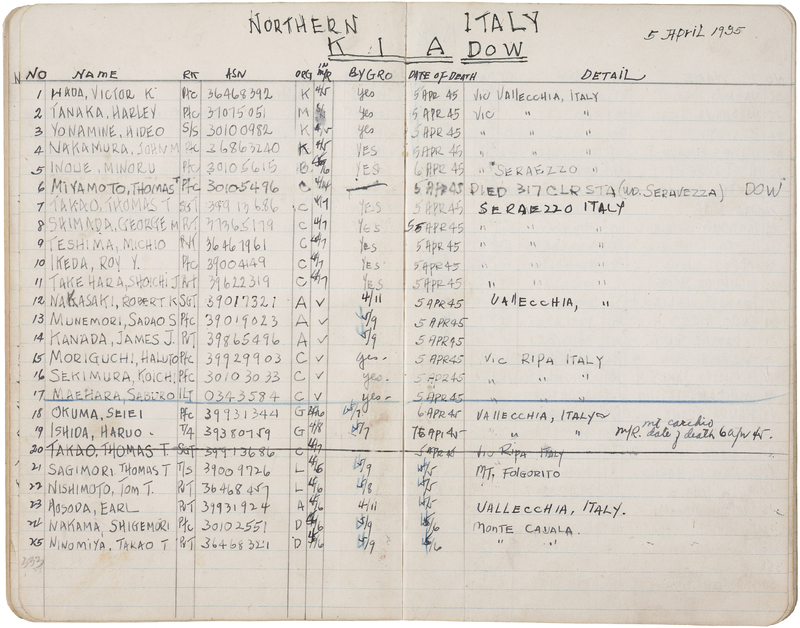 NORTHERN ITALY
5 April 1935
K I A DOW
NO NAME RK ASN ORG IN M/R BY GRO DATE OF DEATH DETAIL
1 HADA, VICTOR K. Pfc 36468392 K 4/5 yes 5 APR 45 Vic VALLECCHIA, ITALY
2 TANAKA, HARLEY Pfc 37075051 M yes 5 APR 45 Vic " "
3 YONAMINE, HIDEO S/S 30100982 K yes 5 APR 45 " "
4 NAKAMURA, JOHN M Pfc 36863240 K 4/5 YES 5 APR 45 " "
5 INOUE, MINORU Pfc 30105615 YES 6 APR 45 " SERAEZZO "
6 MIYAMOTO, THOMAS T Pfc 30105496 C 5 APR 45 DIED 317 CLR STA (WD. SERAVEZZA) DOW
7 TAKAO, THOMAS T SGT 39913686 C 4/7 YES 5 APR 45 SERAEZZO ITALY
8 SHIMADA, GEORGE M PVT 37365179 C 4/7 YES 5 APR 45 " "
9 TESHIMA, MICHIO PVT 36461961 C 4/7 YES 5 APR 45 " "
10 IKEDA, ROY Y. Pfc 39004149 C 4/7 YES 5 APR 45 " "
11 TAKEHARA, SHOICHI J. PVT 39622319 C 4/7 YES 5 APR 45 " "
12 NAKASAKI, ROBERT K SGT 39017321 A ✓ 4/11 5 APR 45 VALLECCHIA, "
13 MUNEMORI, SADAO S Pfc 39019023 A ✓ 5/9 5 APR 45
14 KANADA, JAMES J. PVT 39865496 A ✓ 5/9 5 APR 45
15 MORIGUCHI, HALUTO Pfc 39929903 C ✓ yes. 5 APR 45 Vic RIPA ITALY
16 SEKIMURA, KOICHI Pfc 30103033 C ✓ yes. 5 APR 45 " " "
17 MAEHARA, SABURO 1LT 0343584 C ✓ yes. 5 APR 45 " " "
18 OKUMA, SEIEI Pfc 39931344 G 4/6 5/7 6 APR 45 VALLECCHIA, ITALY
19 ISHIDA, HARUO T/4 39380759 G 4/8 5/7 APR 45 " " mt carchio M/R. date of death 6 apr 45.
20 TAKAO, THOMAS T. SGT 39913686 C 4/7 5 APR 45 Vic RIPA ITALY
21 SAGIMORI THOMAS T T/5 39009726 L 4/6 5/9 4/5 MT. FOLGORITO
22 NISHIMOTO, TOM T. PVT 36468457 L 4/6 5/8 4/5 " "
23 HOSODA, EARL PVT 39931924 A 4/6 4/11 4/5 VALLECCHIA, ITALY.
24 NAKAMA, SHIGENORI Pfc 30102551 D 4/6 5/9 4/6 MONTE CAVALA.
25 NINOMIYA, TAKAO T PVT 36468321 D 4/6 5/9 4/6 " "